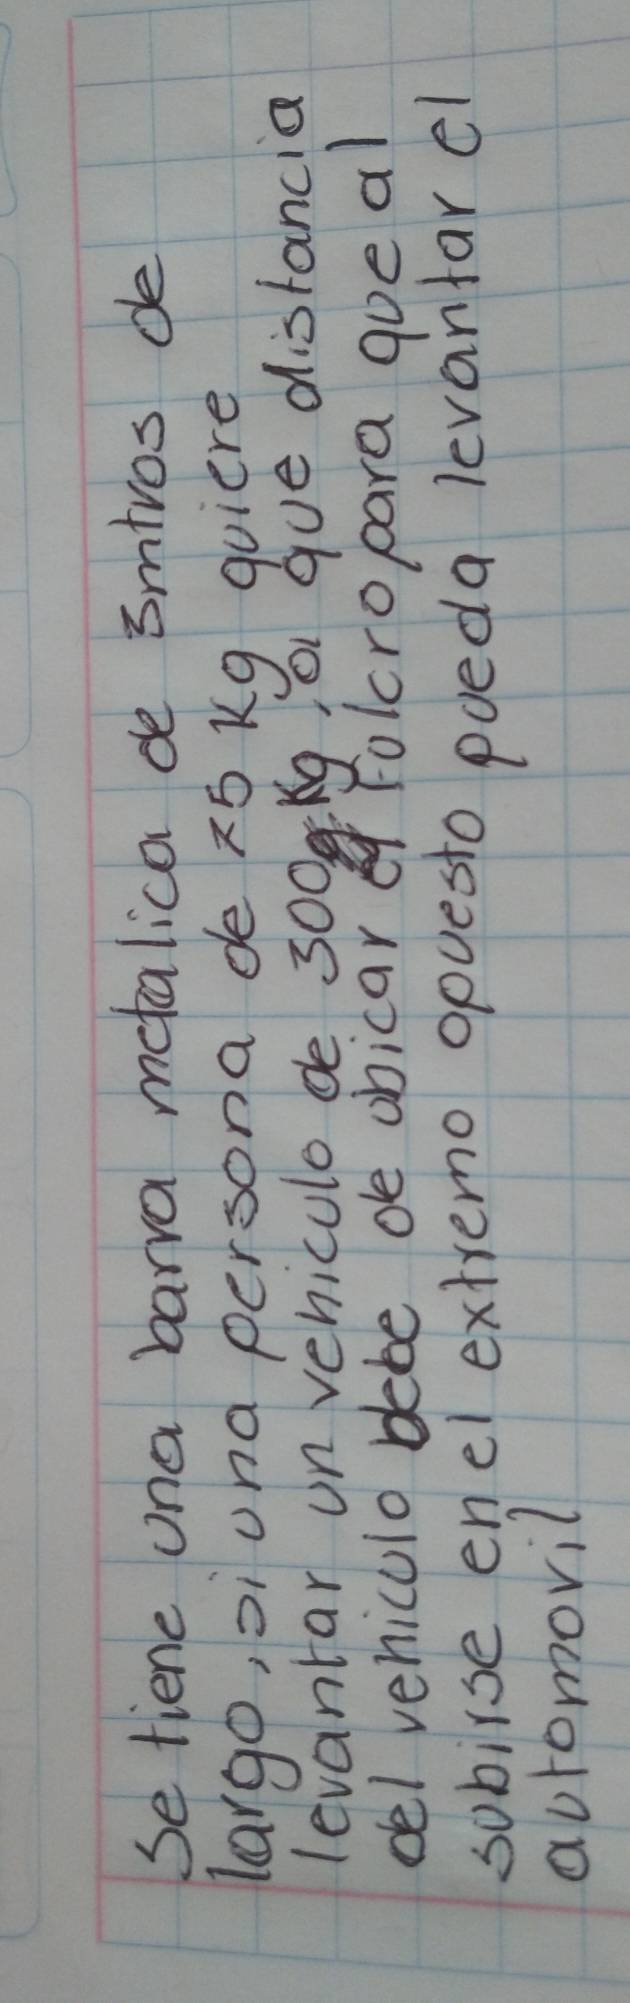 Se tiene una barra metalica de 3mtros de
largo, si una persona de 75 Kg quiere
levantar un vehiculo de 300 Kg, a que distancia
del vehiculo debe de ubicar el fulcro para que al
subirse en el extremo opuesto pueda levantar el
automovil